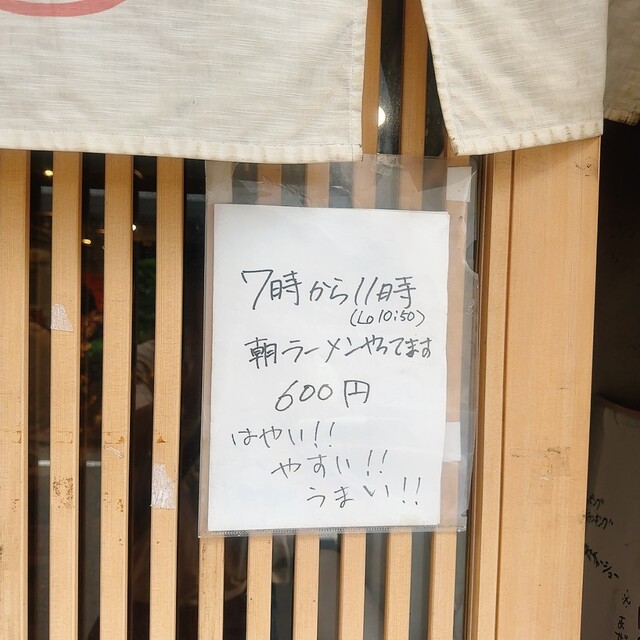 7時から11時
(Lo 10:50)
朝ラーメンやってます
600円
はやい!!
やすい!!
うまい!!